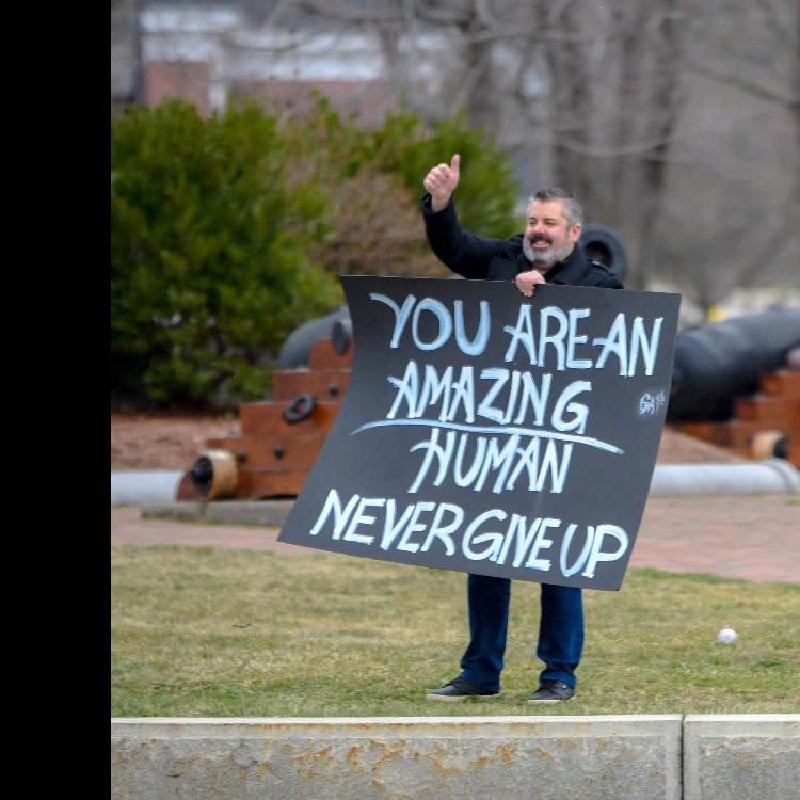 YOU ARE AN
AMAZING
HUMAN
NEVER GIVE UP